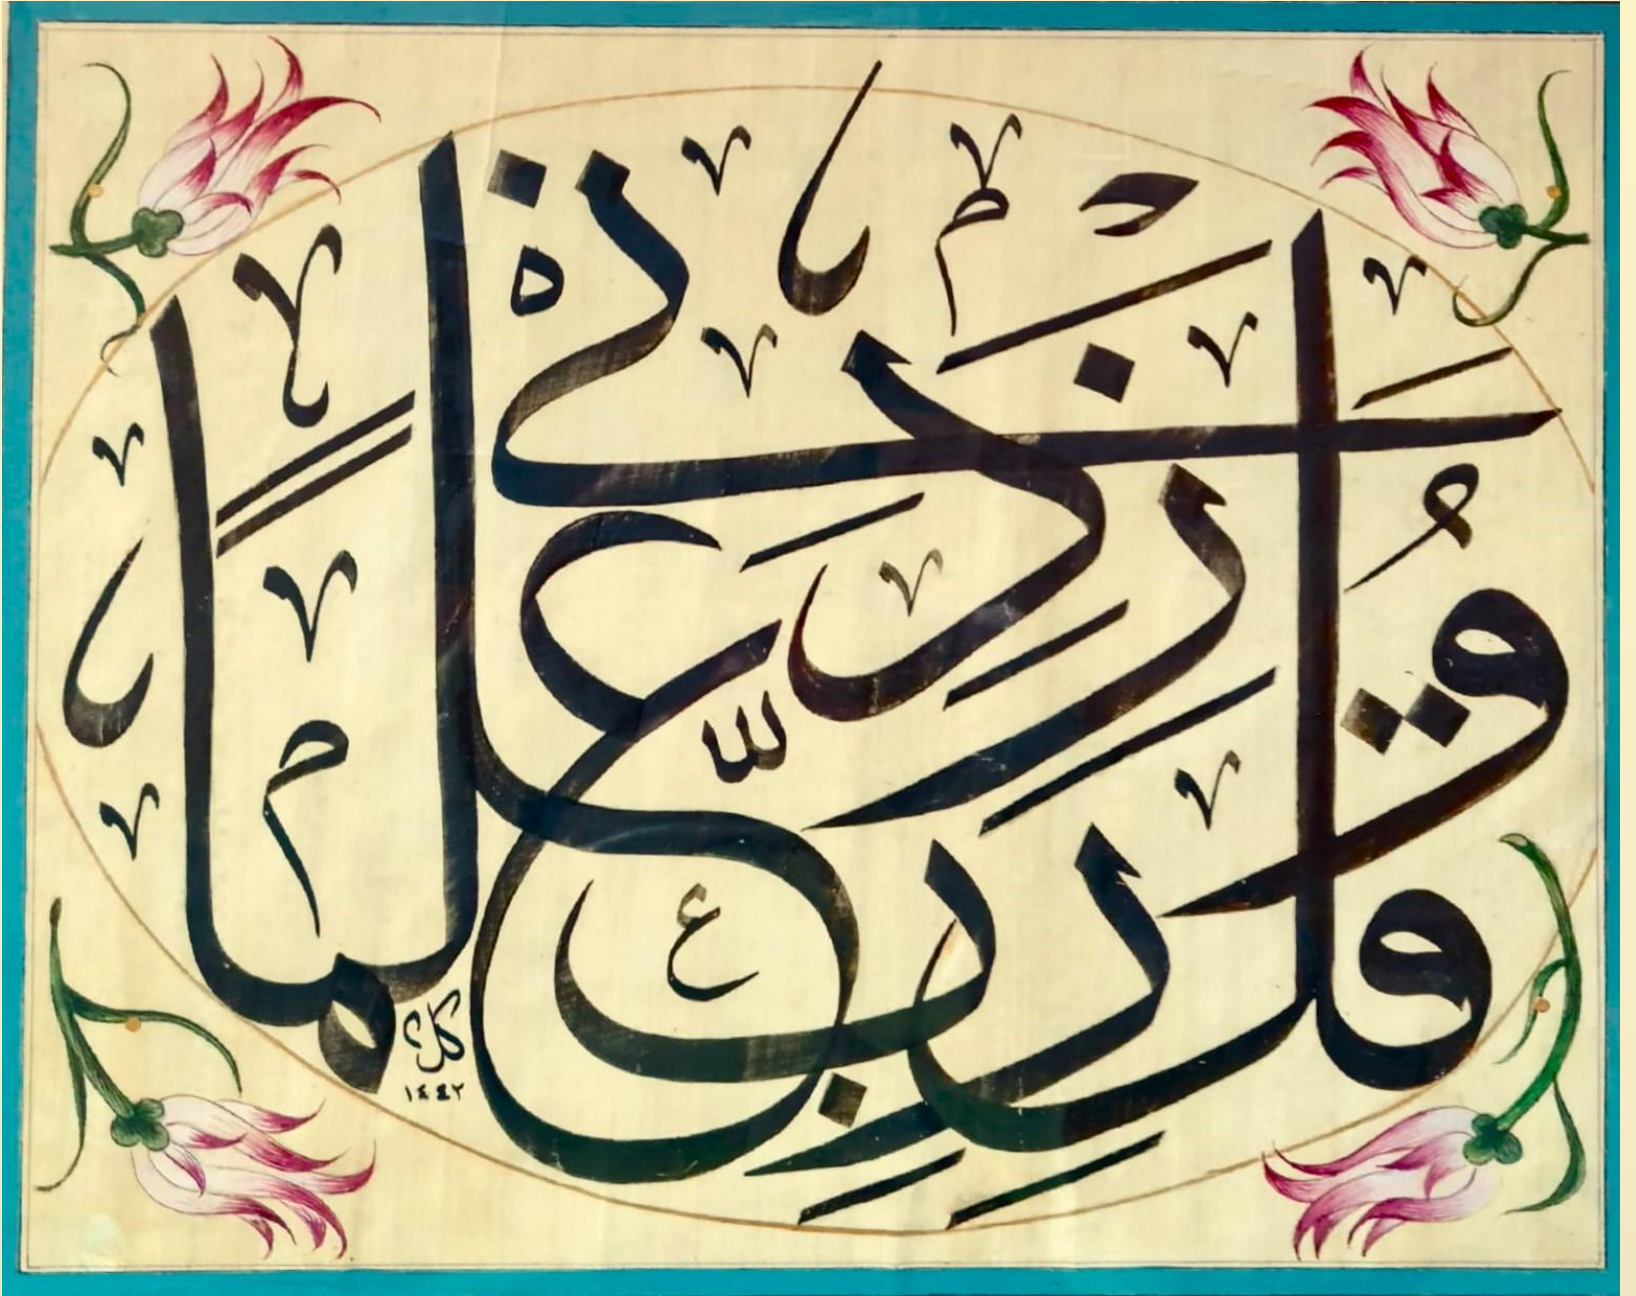 وَقُلْ رَبِّ زِدْنِي عِلْمًا
١٤٤٢